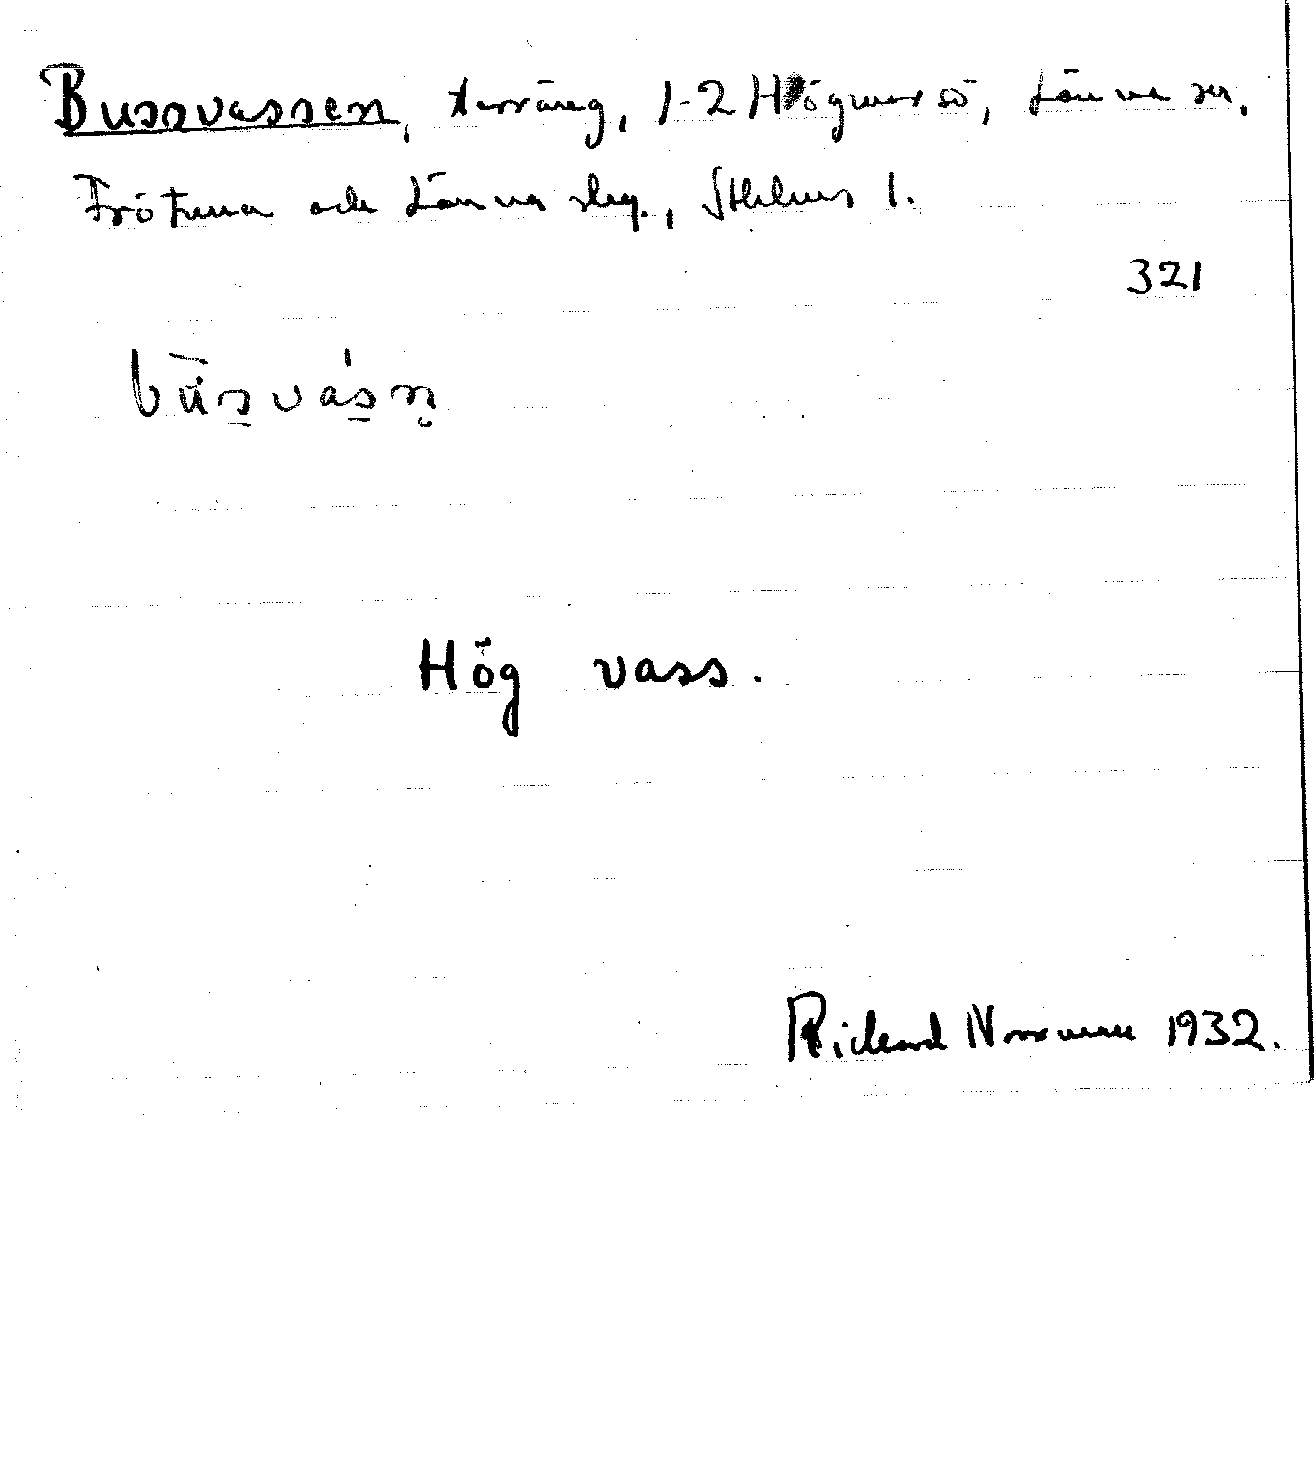 Bussvassen, terräng, 1-2 Högmarsö, Länna sn.
Frötuna och Länna slg., Sthlms l.
321
Hög vass.
Rickard Norrman 1932.